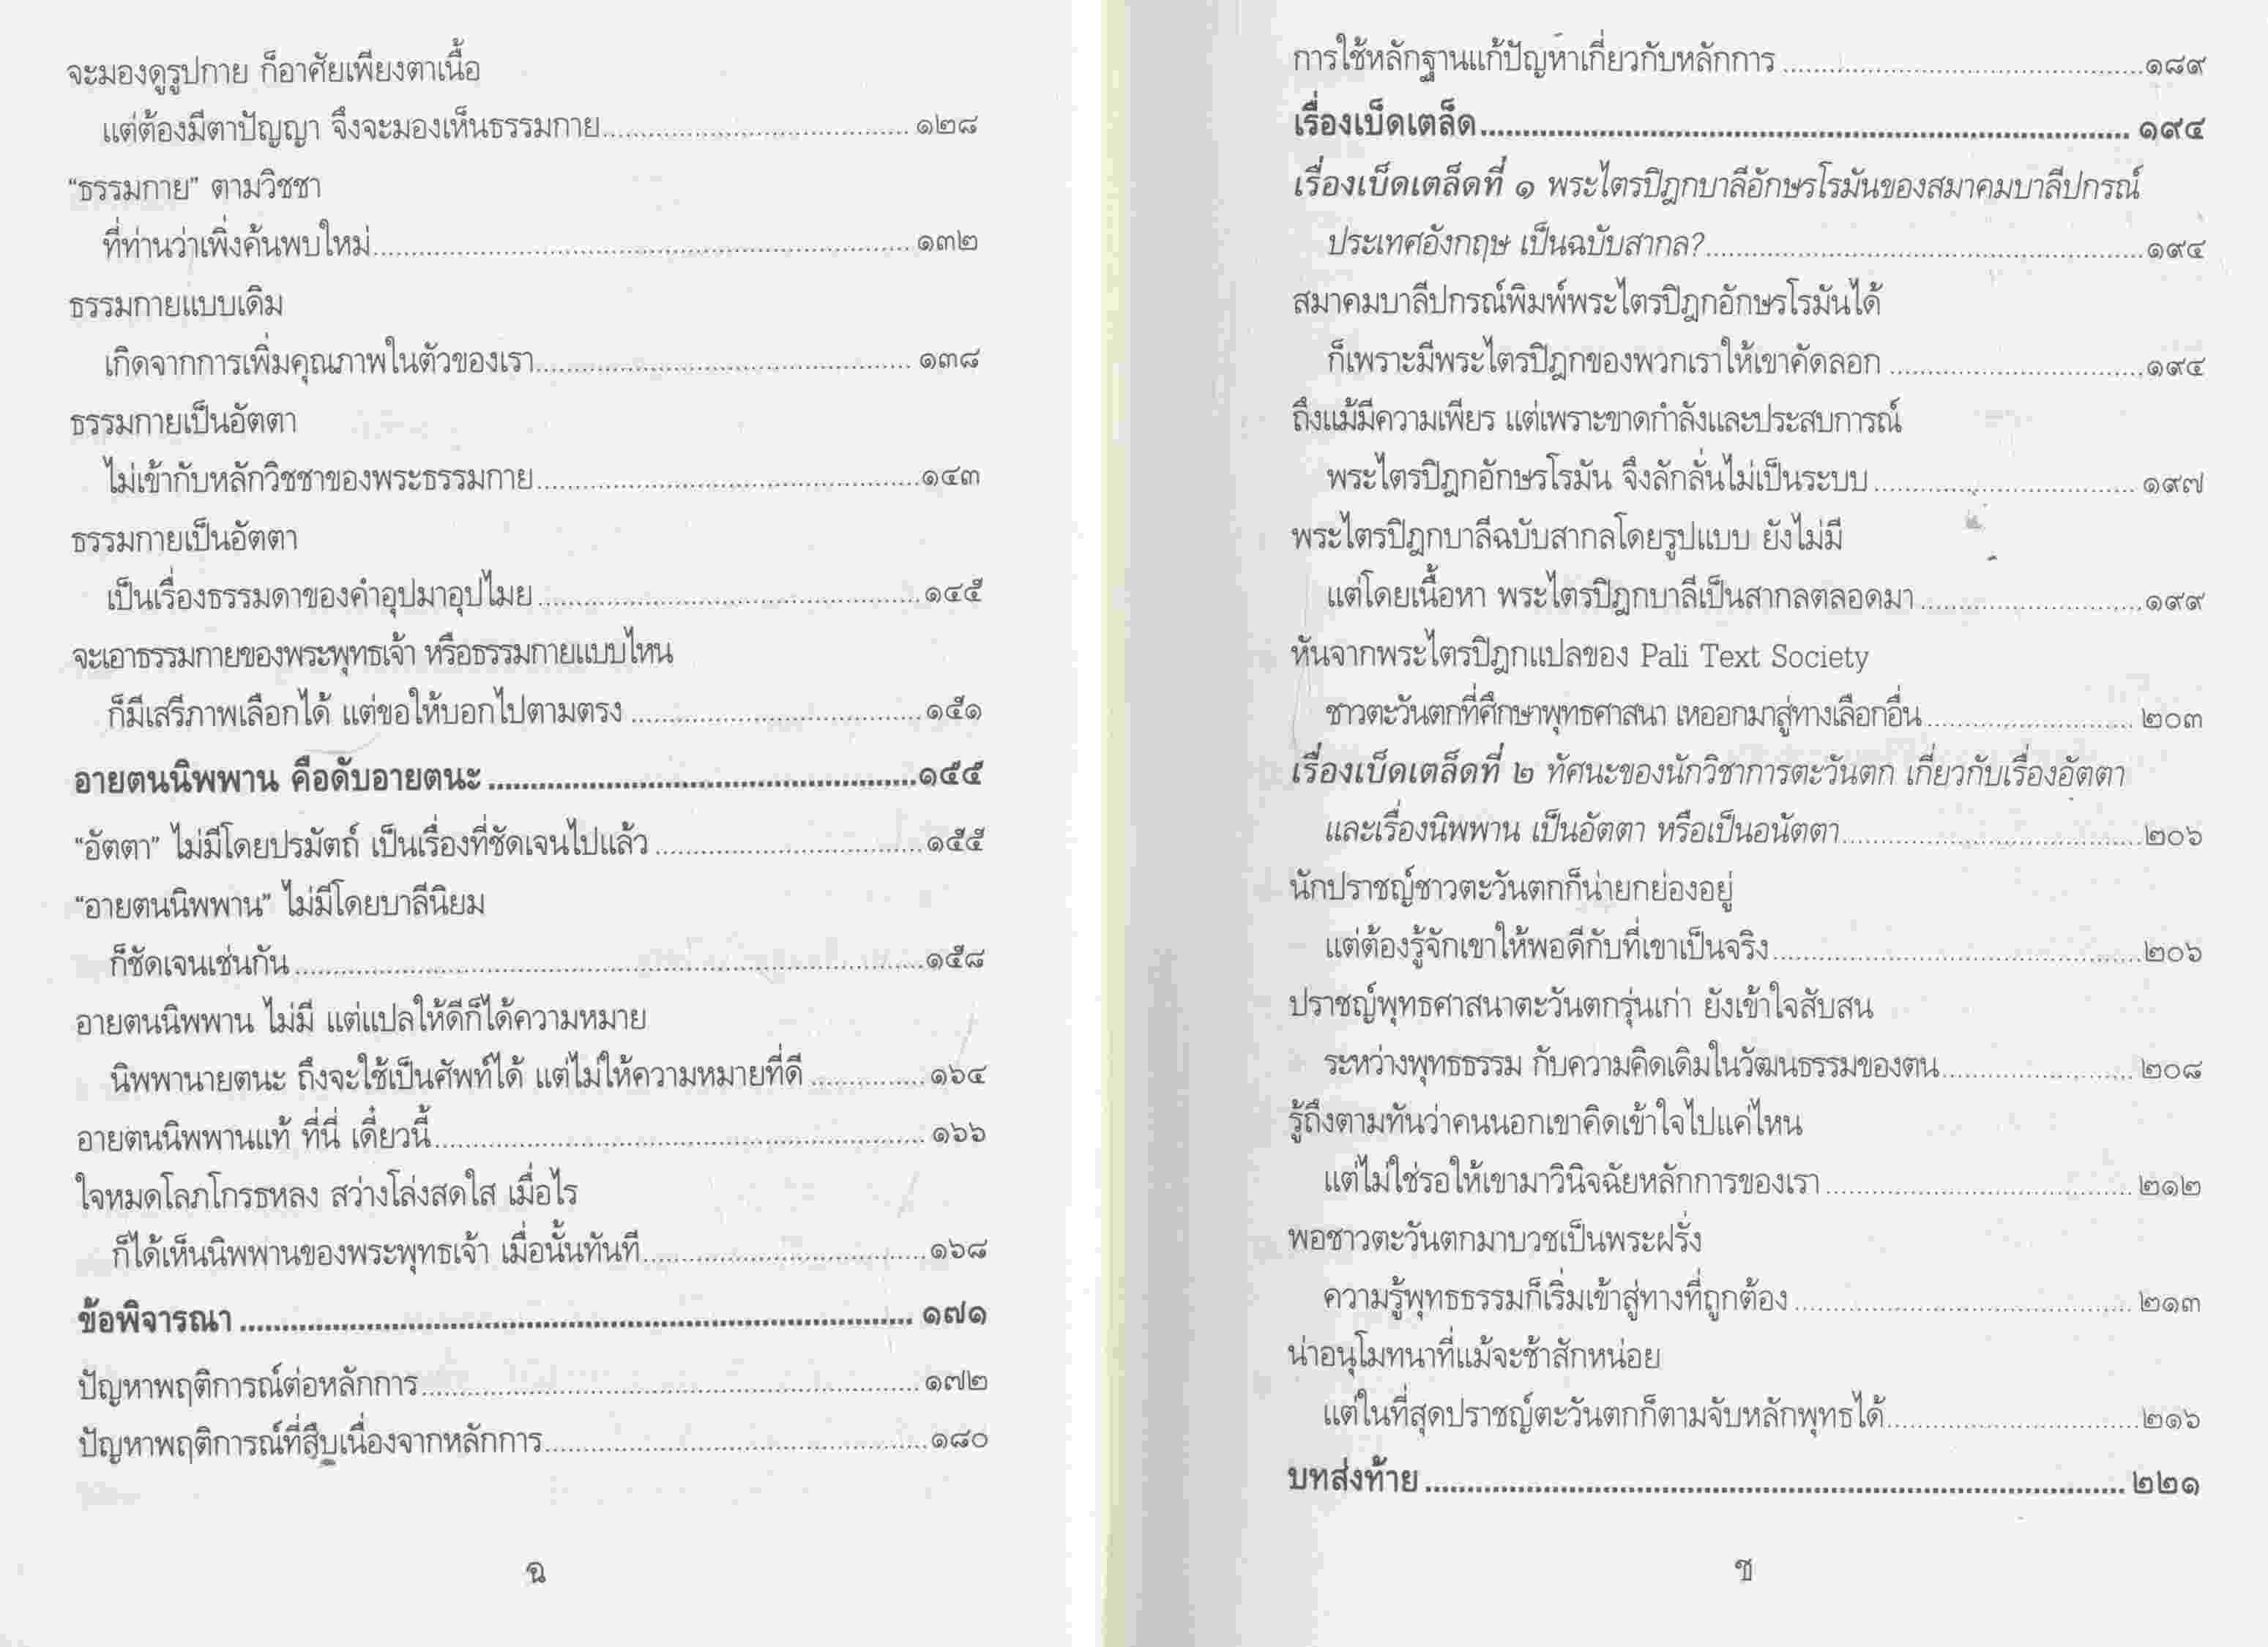 จะมองดูรูปกาย ก็อาศัยเพียงตาเนื้อ
แต่ต้องมีตาปัญญา จึงจะมองเห็นธรรมกาย.......................................๑๒๘
“ธรรมกาย” ตามวิชชา
ที่ท่านว่าเพิ่งค้นพบใหม่.......................................๑๓๒
ธรรมกายแบบเดิม
เกิดจากการเพิ่มคุณภาพในตัวของเรา.......................................๑๓๘
ธรรมกายเป็นอัตตา
ไม่เข้ากับหลักวิชชาของพระธรรมกาย.......................................๑๔๓
ธรรมกายเป็นอัตตา
เป็นเรื่องธรรมดาของคำอุปมาอุปไมย.......................................๑๔๕
จะเอาธรรมกายของพระพุทธเจ้า หรือธรรมกายแบบไหน
ก็มีเสรีภาพเลือกได้ แต่ขอให้บอกไปตามตรง.......................................๑๕๑
อายตนนิพพาน คือดับอายตนะ.......................................๑๕๕
“อัตตา” ไม่มีโดยปรมัตถ์ เป็นเรื่องที่ชัดเจนไปแล้ว.......................................๑๕๕
“อายตนนิพพาน” ไม่มีโดยบาลีนิยม
ก็ชัดเจนเช่นกัน.......................................๑๕๘
อายตนนิพพาน ไม่มี แต่แปลให้ดีก็ได้ความหมาย
นิพพานายตนะ ถึงจะใช้เป็นศัพท์ได้ แต่ไม่ให้ความหมายที่ดี..............๑๖๔
อายตนนิพพานแท้ ที่นี่ เดี๋ยวนี้.......................................๑๖๖
ใจหมดโลภโกรธหลง สว่างโล่งสดใส เมื่อไร
ก็ได้เห็นนิพพานของพระพุทธเจ้า เมื่อนั้นทันที.......................................๑๖๘
ข้อพิจารณา.......................................๑๗๑
ปัญหาพฤติการณ์ต่อหลักการ.......................................๑๗๒
ปัญหาพฤติการณ์ที่สืบเนื่องจากหลักการ.......................................๑๘๐
ฉ
การใช้หลักฐานแก้ปัญหาเกี่ยวกับหลักการ.......................................๑๘๙
เรื่องเบ็ดเตล็ด.......................................๑๙๔
เรื่องเบ็ดเตล็ดที่ ๑ พระไตรปิฎกบาลีอักษรโรมันของสมาคมบาลีปกรณ์
ประเทศอังกฤษ เป็นฉบับสากล?.......................................๑๙๔
สมาคมบาลีปกรณ์พิมพ์พระไตรปิฎกอักษรโรมันได้
ก็เพราะมีพระไตรปิฎกของพวกเราให้เขาคัดลอก.......................................๑๙๔
ถึงแม้มีความเพียร แต่เพราะขาดกำลังและประสบการณ์
พระไตรปิฎกอักษรโรมัน จึงลักลั่นไม่เป็นระบบ.......................................๑๙๗
พระไตรปิฎกบาลีฉบับสากลโดยรูปแบบ ยังไม่มี
แต่โดยเนื้อหา พระไตรปิฎกบาลีเป็นสากลตลอดมา.......................................๑๙๙
หันจากพระไตรปิฎกแปลของ Pali Text Society
ชาวตะวันตกที่ศึกษาพุทธศาสนา เหออกมาสู่ทางเลือกอื่น.......................................๒๐๓
เรื่องเบ็ดเตล็ดที่ ๒ ทัศนะของนักวิชาการตะวันตก เกี่ยวกับเรื่องอัตตา
และเรื่องนิพพาน เป็นอัตตา หรือเป็นอนัตตา.......................................๒๐๖
นักปราชญ์ชาวตะวันตกก็น่ายกย่องอยู่
แต่ต้องรู้จักเขาให้พอดีกับที่เขาเป็นจริง.......................................๒๐๖
ปราชญ์พุทธศาสนาตะวันตกรุ่นเก่า ยังเข้าใจสับสน
ระหว่างพุทธธรรม กับความคิดเดิมในวัฒนธรรมของตน.......................................๒๐๘
รู้ถึงตามทันว่าคนนอกเขาคิดเข้าใจไปแค่ไหน
แต่ไม่ใช่รอให้เขามาวินิจฉัยหลักการของเรา.......................................๒๑๒
พอชาวตะวันตกมาบวชเป็นพระฝรั่ง
ความรู้พุทธธรรมก็เริ่มเข้าสู่ทางที่ถูกต้อง.......................................๒๑๓
น่าอนุโมทนาที่แม้จะช้าสักหน่อย
แต่ในที่สุดปราชญ์ตะวันตกก็ตามจับหลักพุทธได้.......................................๒๑๖
บทส่งท้าย.......................................๒๒๑
ช